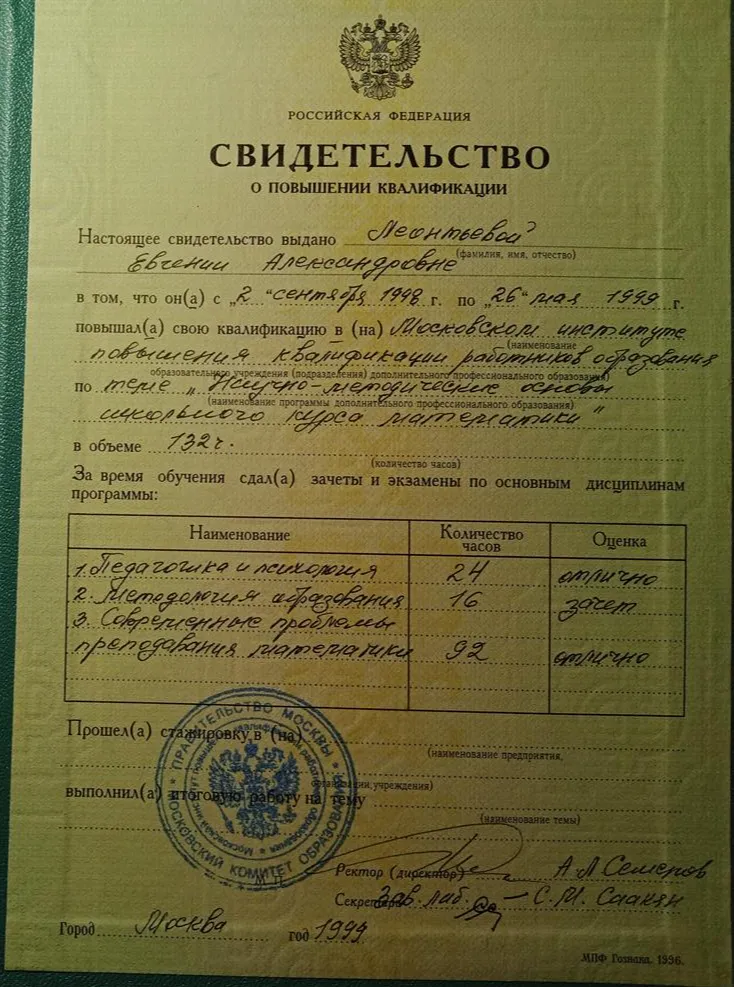 РОССИЙСКАЯ ФЕДЕРАЦИЯ
СВИДЕТЕЛЬСТВО
О ПОВЫШЕНИИ КВАЛИФИКАЦИИ
Настоящее свидетельство выдано Леонтьевой
(фамилия, имя, отчество)
Евгении Александровне
в том, что он(а) с „2 “ сентября 1998 г. по „26“ мая 1999 г.
повышал(а) свою квалификацию в (на) Московском институте
(наименование
повышения квалификации работников образования
образовательного учреждения (подразделения) дополнительного профессионального образования)
по теме „Научно-методические основы
(наименование программы дополнительного профессионального образования)
школьного курса математики"
в объеме 132 ч.
(количество часов)
За время обучения сдал(а) зачеты и экзамены по основным дисциплинам
программы:
Наименование Количество часов Оценка
1. Педагогика и психология 24 отлично
2. Методология образования 16 зачет
3. Современные проблемы
преподавания математики 92 отлично
Прошел(а) стажировку в (на)
(наименование предприятия,
организации, учреждения)
выполнил(а) итоговую работу на тему
(наименование темы)
ПРАВИТЕЛЬСТВО МОСКВЫ
МОСКОВСКИЙ КОМИТЕТ ОБРАЗОВАНИЯ
Ректор (директор) А Л Семенов
Секретарь Зав. лаб. — С. М. Саакян
Город Москва год 1999
МПФ Гознака. 1996.